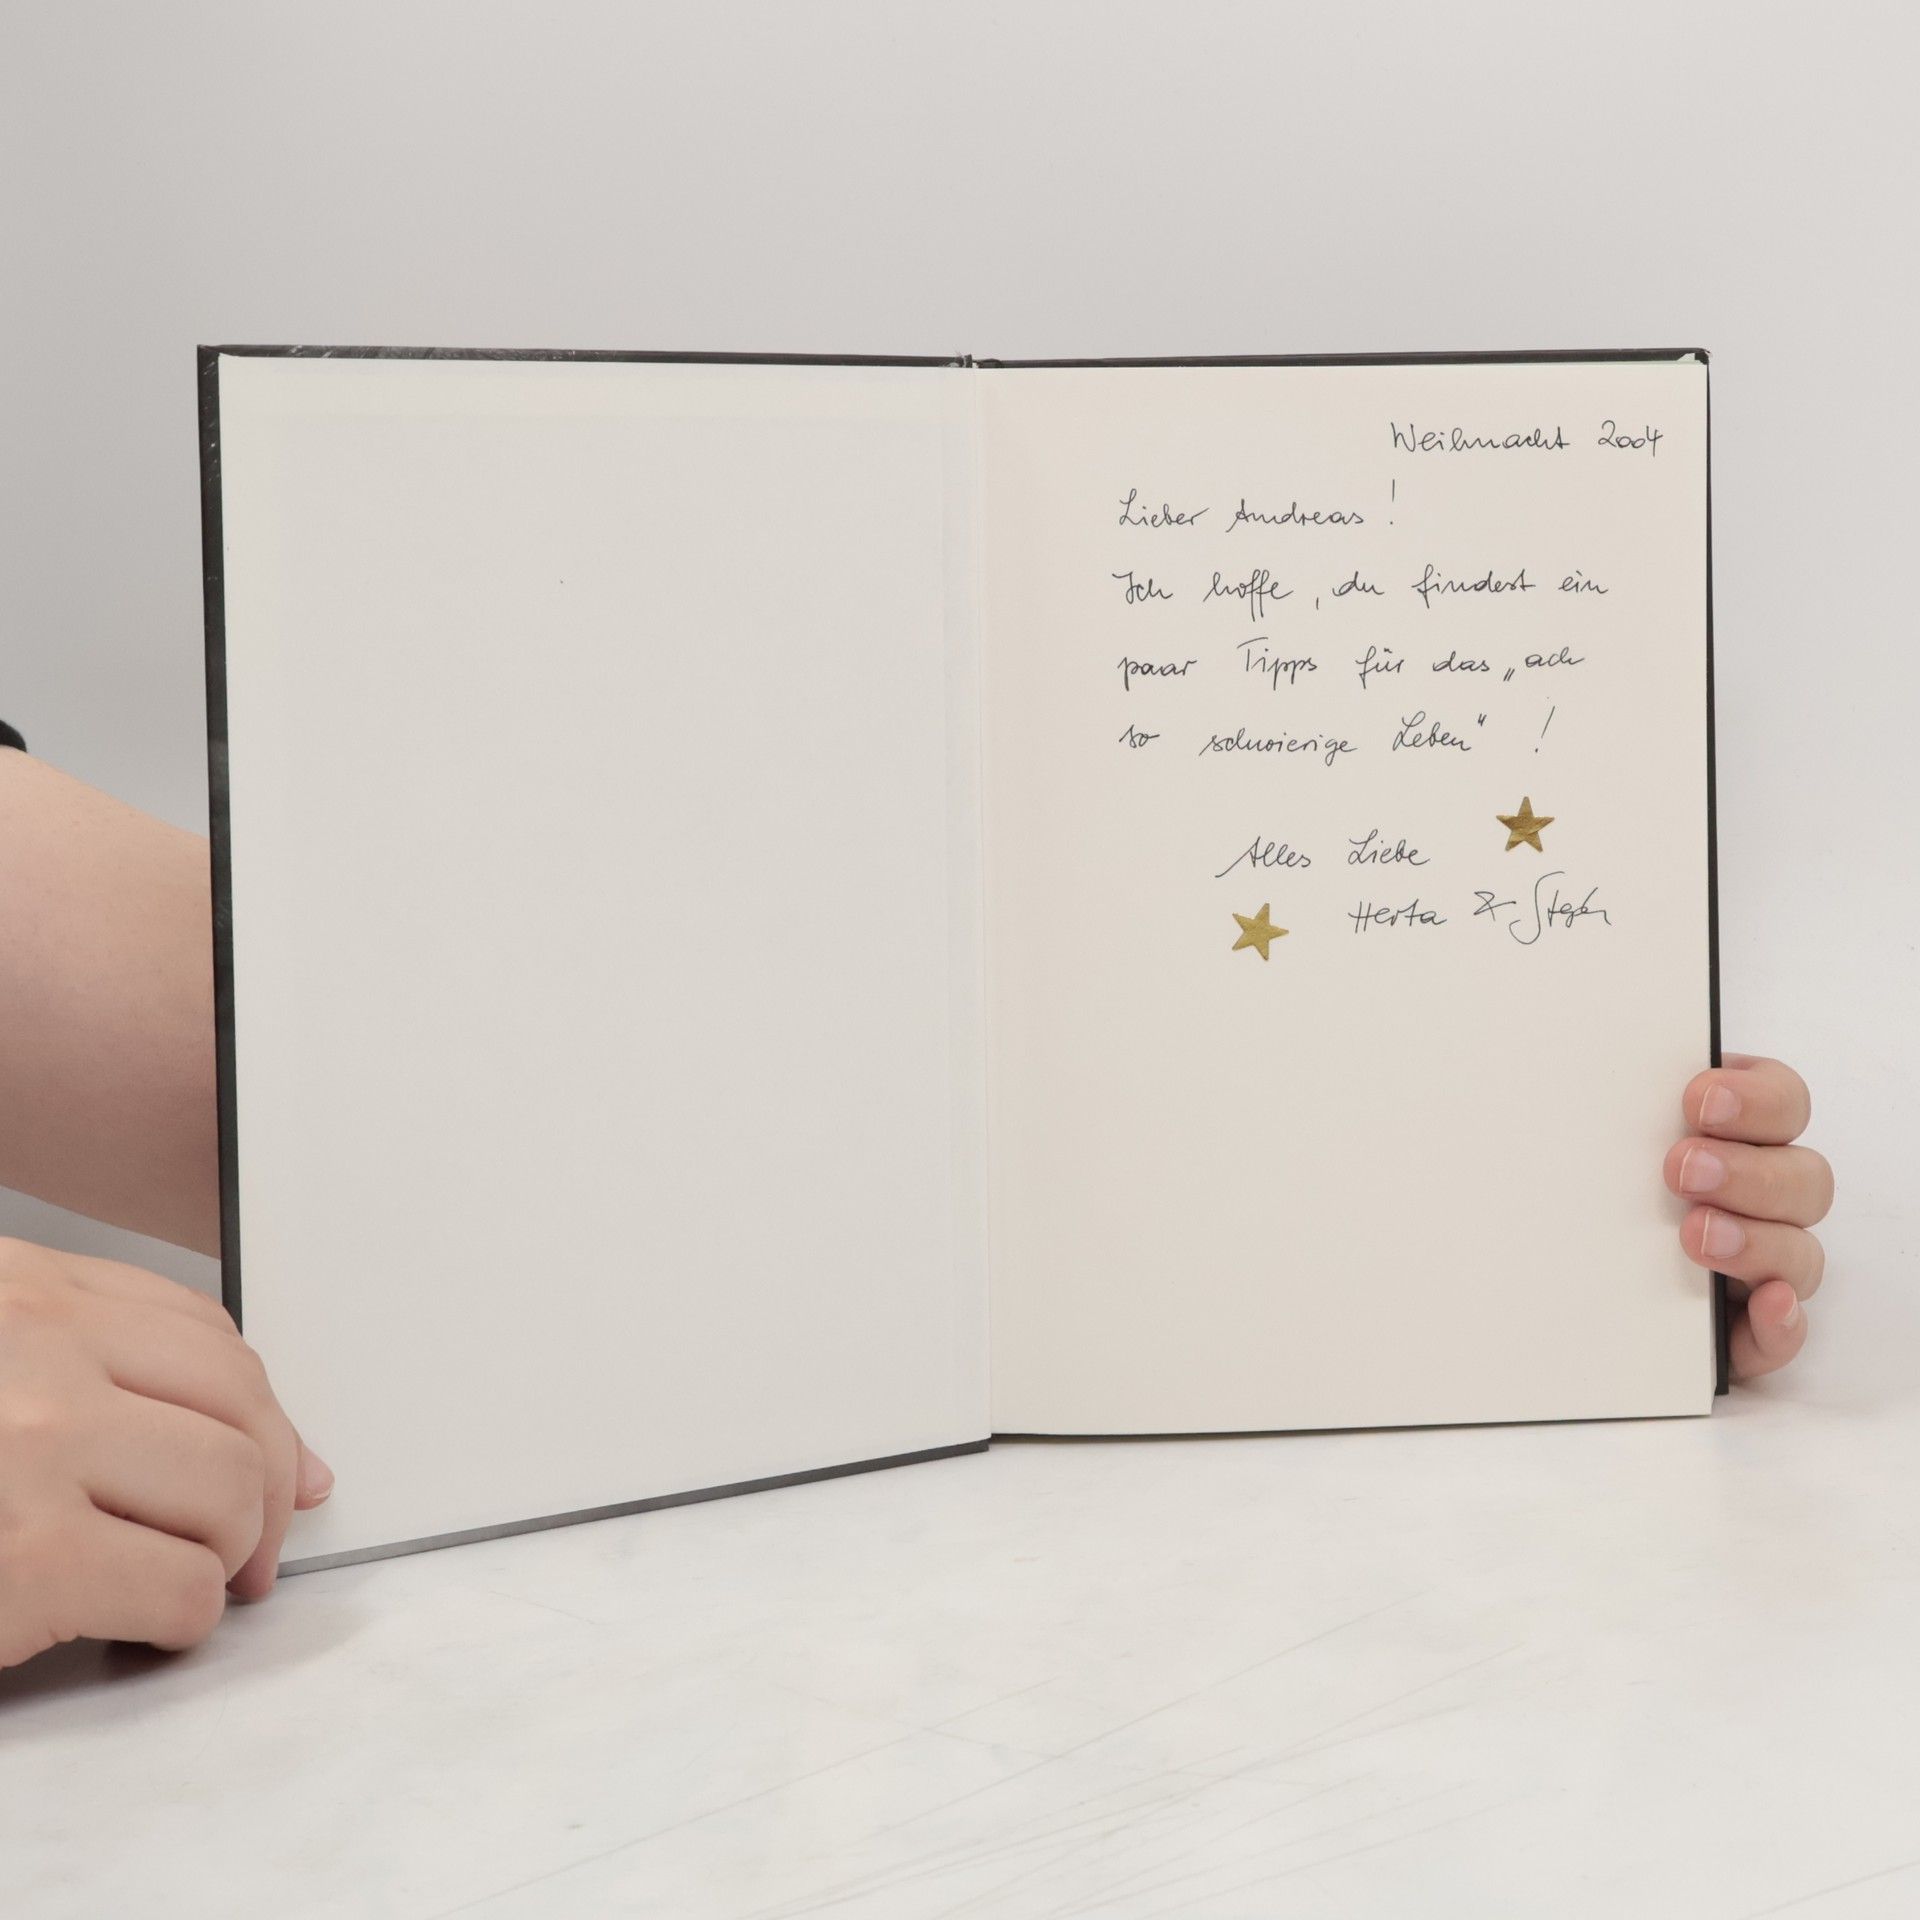 Weihnacht 2004
Lieber Andreas!
Ich hoffe, du findest ein
paar Tipps für das „ach
so schwierige Leben“!
Alles Liebe
Herta & Stefan